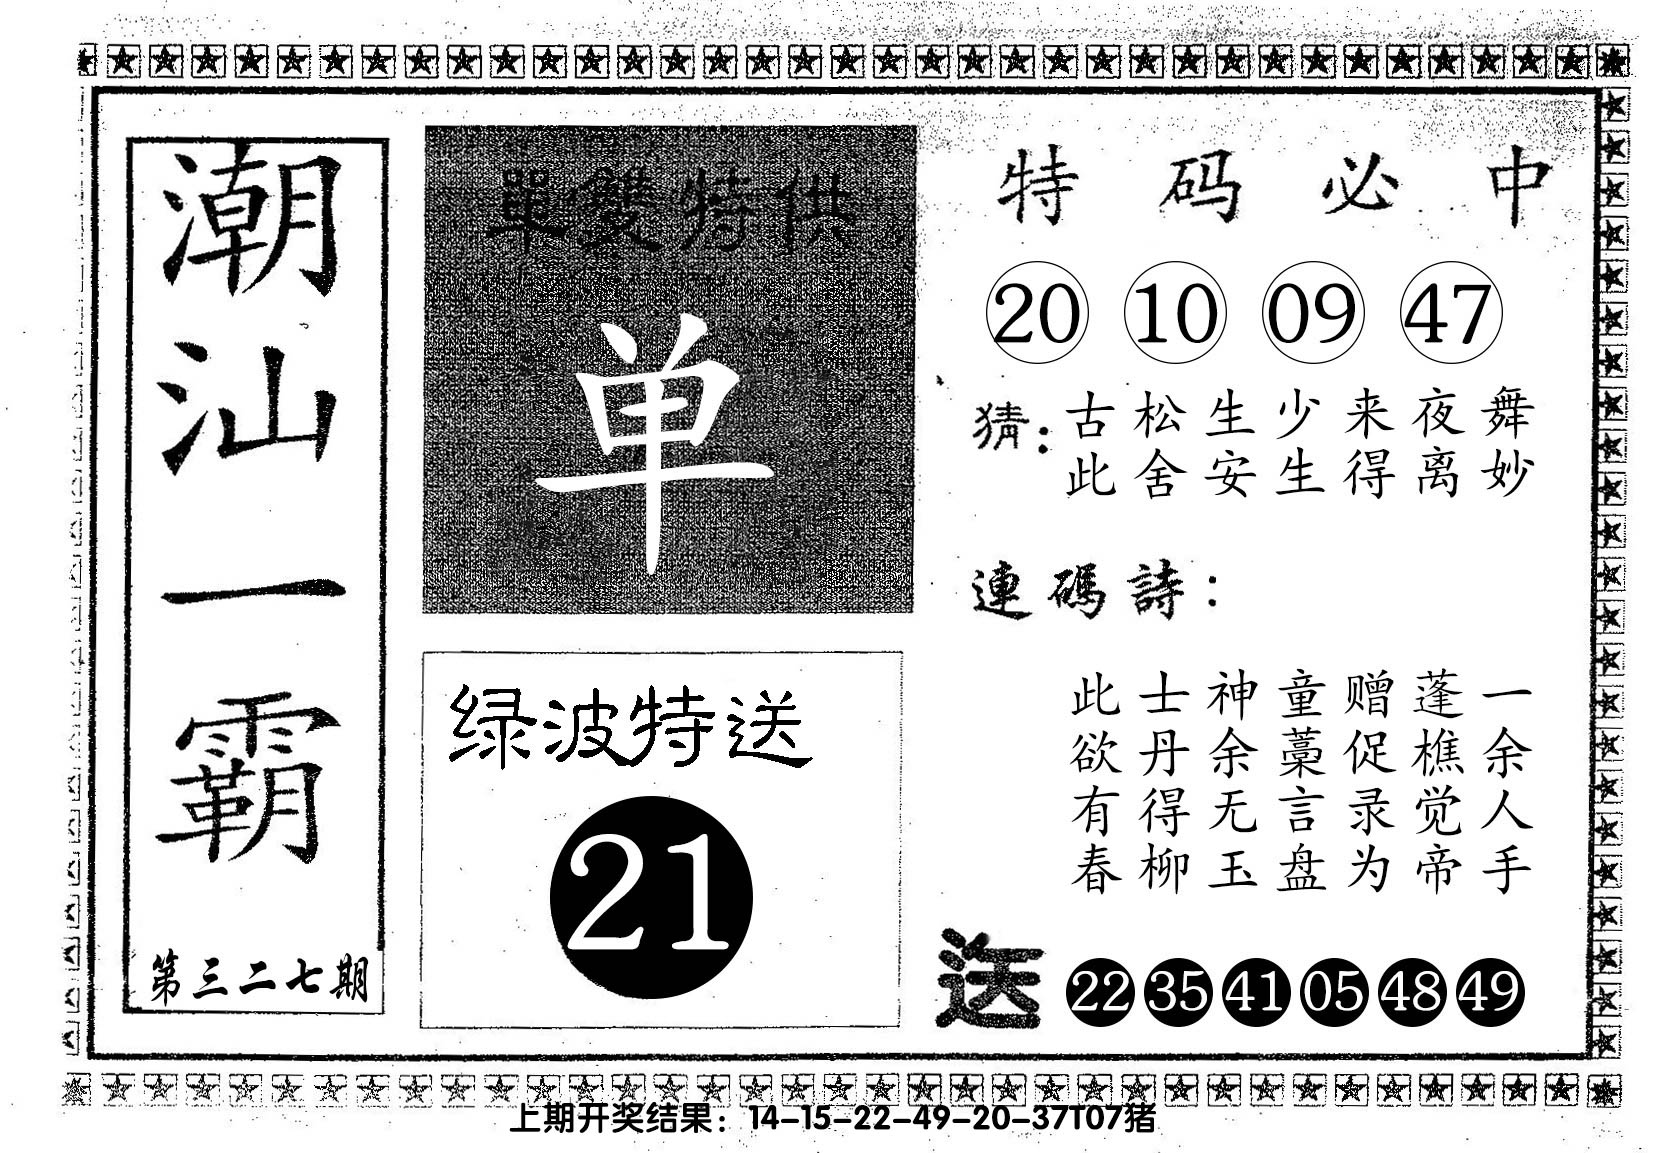 潮汕一霸
第三二七期
單雙特供
单
绿波特送
21
特码必中
20 10 09 47
猜：古松生少来夜舞
此舍安生得离妙
連碼詩：
此士神童赠蓬一
欲丹余藁促樵余
有得无言录觉人
春柳玉盘为帝手
送 22 35 41 05 48 49
上期开奖结果：14-15-22-49-20-37T07猪